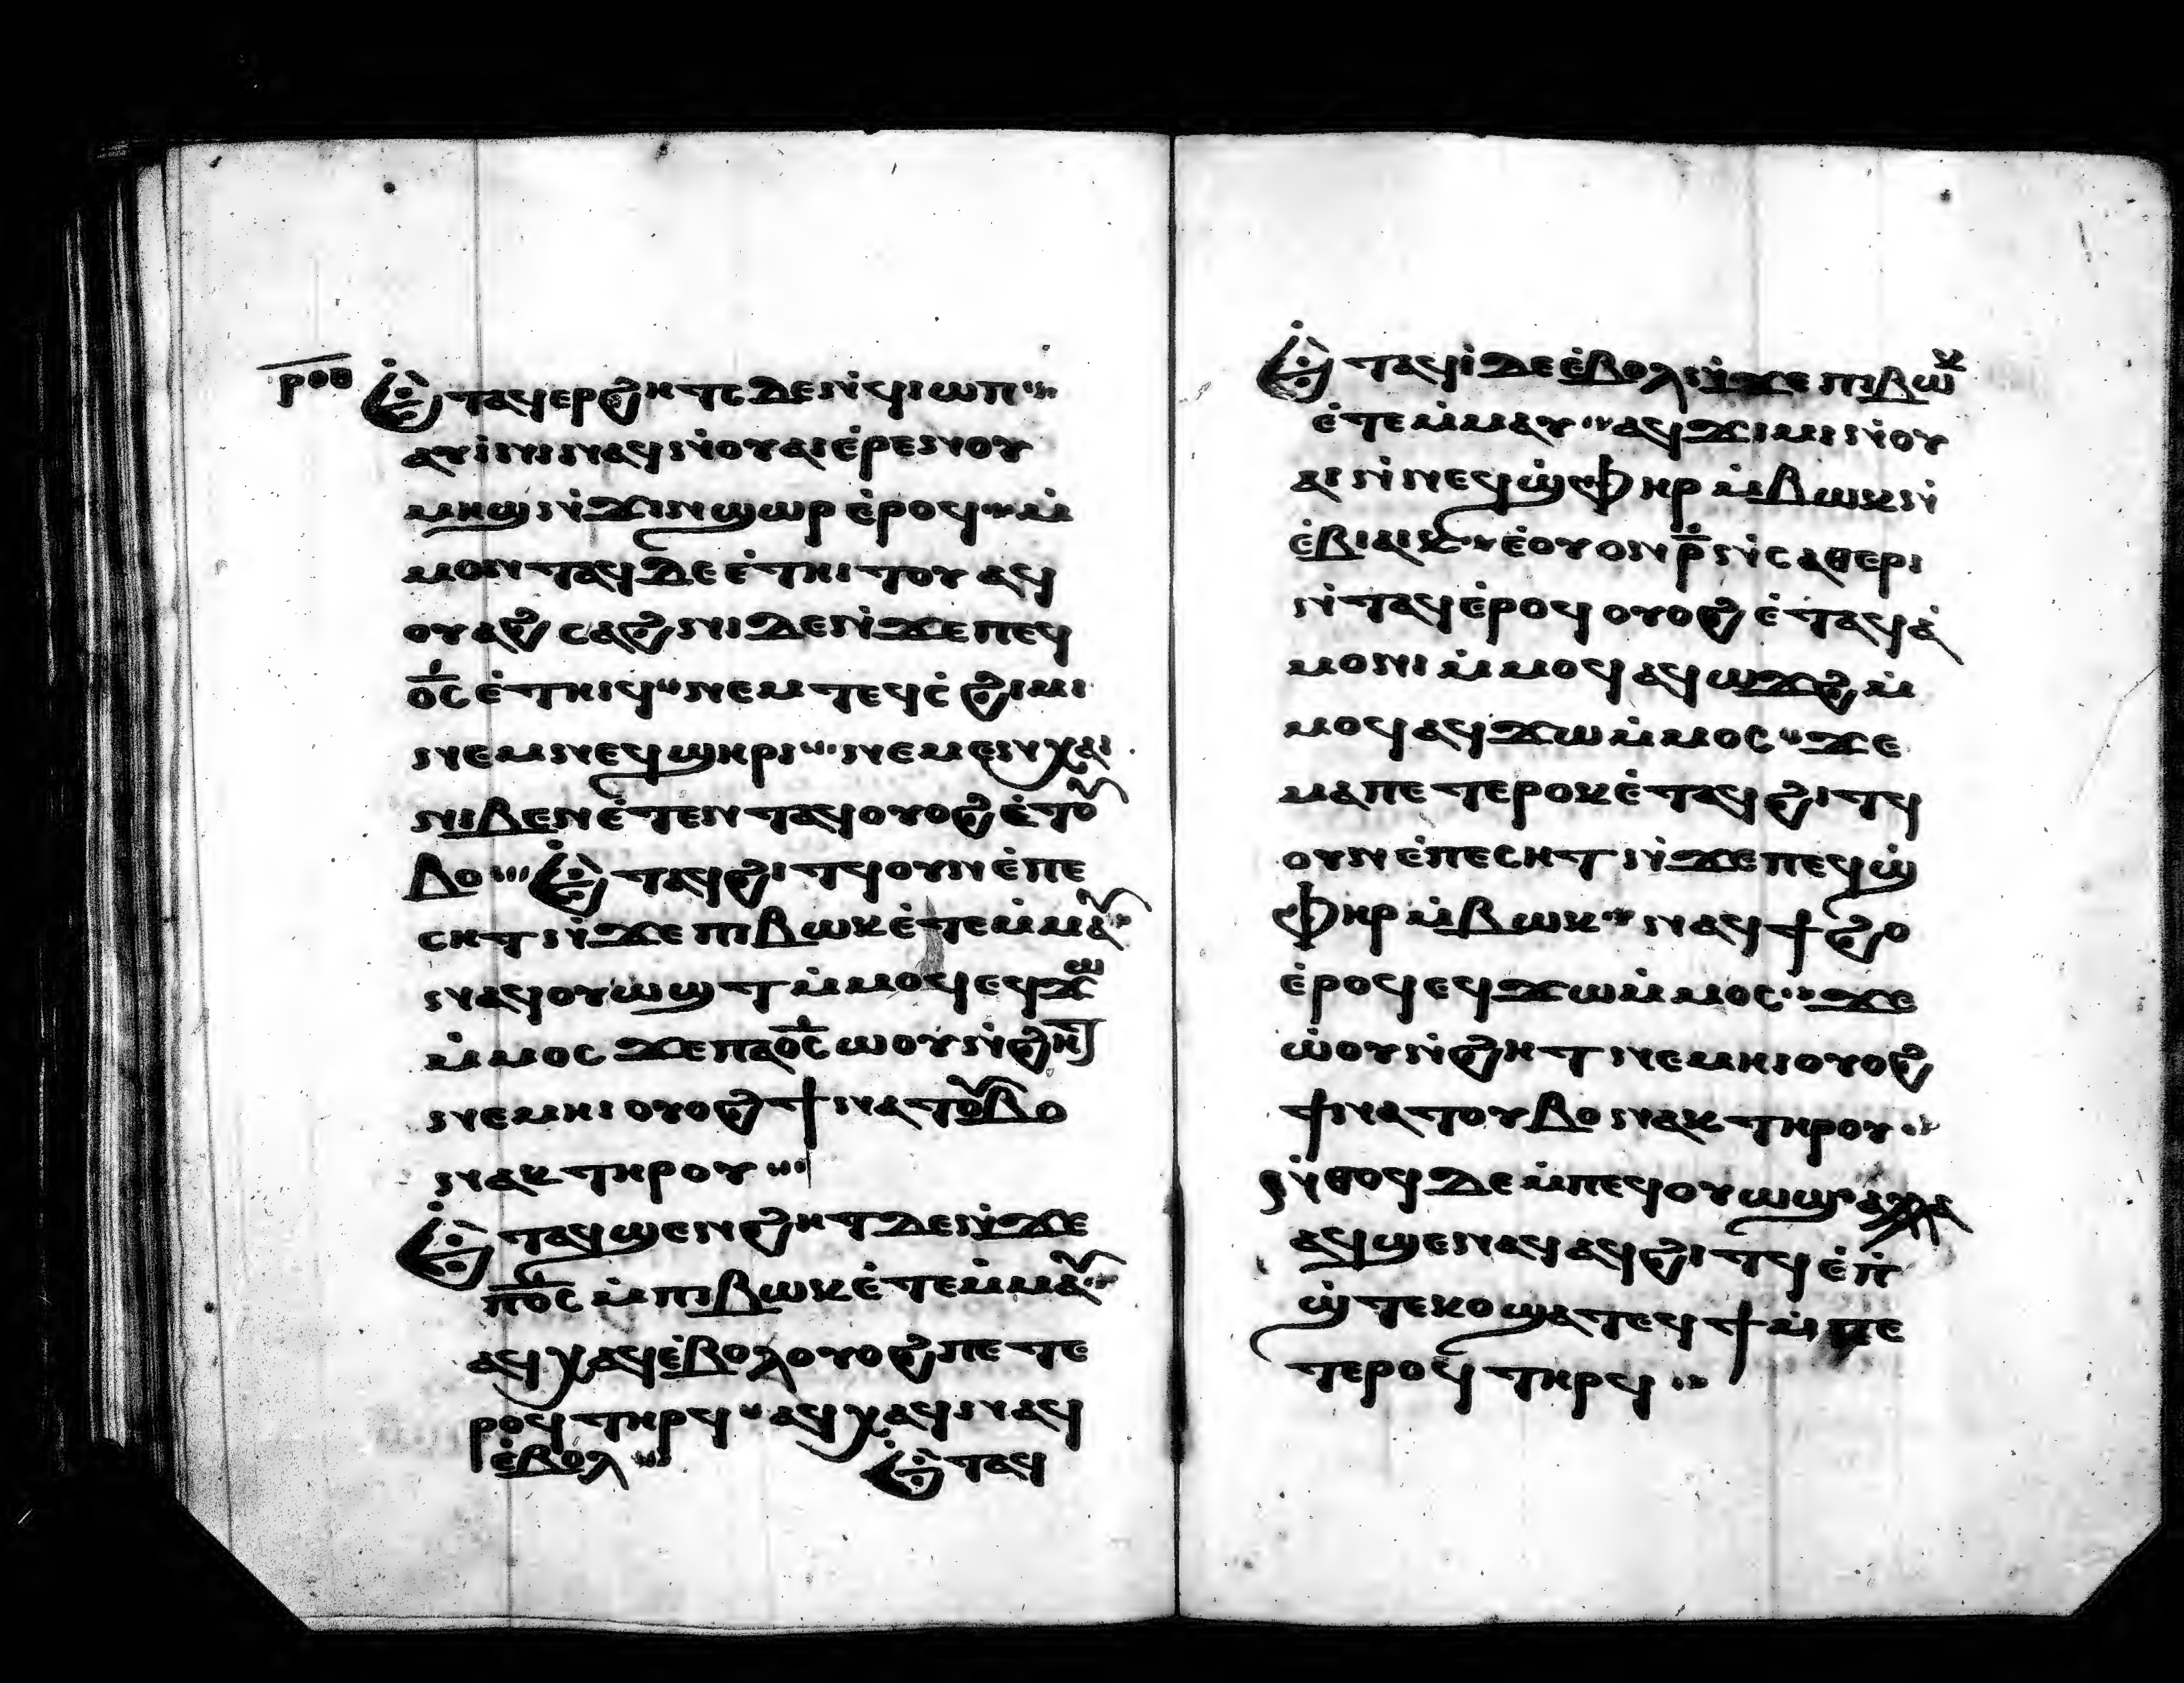 ⲣⲟⲑ Ⲉ̇ⲧⲁϥⲉⲣϩⲏⲧⲥ ⲇⲉ ⲛ̇ϥⲓⲱⲡ
ⲁⲩⲓ̇ⲛⲓ ⲛⲁϥ ⲛ̇ⲟⲩⲁⲓ ⲉ̇ⲣⲉ ⲛⲟⲩ
ⲙⲏϣ ⲛ̇ϫⲓⲛϣⲱⲣ ⲉ̇ⲣⲟϥ ⲙ̇
ⲙⲟⲛⲧⲁϥ ⲇⲉ ⲉ̇ⲧⲏⲓⲧⲟⲩ ⲁϥ
ⲟⲩⲁϩⲥⲁϩⲛⲓ ⲇⲉ ⲛ̇ϫⲉ ⲡⲉϥ
ⲟ̅ⲥ̅ ⲉ̇ⲧⲏⲓϥ ⲛⲉⲙ ⲧⲉϥⲥ̇ϩⲓⲙⲓ
ⲛⲉⲙ ⲛⲉϥϣⲏⲣⲓ ⲛⲉⲙ ⲉⲛⲭⲁⲓ
ⲛⲓⲃⲉⲛ ⲉ̇ⲧⲉⲛⲧⲁϥ ⲟⲩⲟϩ ⲉ̇ⲧⲟⲩ
ⲃⲟ Ⲉ̇ⲧⲁϥϩⲓⲧϥ ⲟⲩⲛ ⲉ̇ⲡⲉ
ⲥⲏⲧ ⲛ̇ϫⲉ ⲡⲓⲃⲱⲕ ⲉ̇ⲧⲉⲙ̇ⲙⲁⲩ
ⲛⲁϥⲟⲩⲱϣⲧ ⲙ̇ⲙⲟϥ ⲉϥϫⲱ
ⲙ̇ⲙⲟⲥ ϫⲉ ⲡⲁⲟ̅ⲥ̅ ⲱⲟⲩ ⲛ̇ϩⲏⲧ
ⲛⲉⲙⲏⲓ ⲟⲩⲟϩ ϯⲛⲁⲧⲟⲩⲃⲟ
ⲛⲁⲕ ⲧⲏⲣⲟⲩ
Ⲉ̇ⲧⲁϥϣⲉⲛϩⲏⲧ ⲇⲉ ⲛ̇ϫⲉ
ⲡⲟ̅ⲥ̅ ⲙ̇ⲡⲓⲃⲱⲕ ⲉ̇ⲧⲉⲙ̇ⲙⲁⲩ
ⲁϥⲭⲁϥ ⲉ̇ⲃⲟⲗ ⲟⲩⲟϩ ⲡⲉⲧⲉ
ⲣⲟϥ ⲧⲏⲣϥ ⲁϥⲭⲁϥ ⲛⲁϥ
ⲉ̇ⲃⲟⲗ Ⲉ̇ⲧⲁϥ
Ⲉ̇ⲧⲁϥⲓ̇ ⲇⲉ ⲉ̇ⲃⲟⲗ ⲛ̇ϫⲉ ⲡⲓⲃⲱⲕ
ⲉ̇ⲧⲉⲙ̇ⲙⲁⲩ ⲁϥϫⲓⲙⲓ ⲛ̇ⲟⲩ
ⲁⲓ ⲛ̇ⲛⲉϥϣ̇ⲫⲏⲣ ⲙ̇ⲃⲱⲕ ⲛ̇
ⲉ̇ⲃⲓⲁⲓⲕ ⲉ̇ⲟⲩⲟⲛ ⲣ̅ ⲛ̇ⲥⲁⲑⲉⲣⲓ
ⲛ̇ⲧⲁϥ ⲉ̇ⲣⲟϥ ⲟⲩⲟϩ ⲉ̇ⲧⲁϥⲁ̇
ⲙⲟⲛⲓ ⲙ̇ⲙⲟϥ ⲁϥⲱϫϩ ⲙ̇
ⲙⲟϥ ⲁϥϫⲱ ⲙ̇ⲙⲟⲥ ϫⲉ
ⲙⲁ ⲡⲉⲧⲉⲣⲟⲕ ⲉ̇ⲧⲁϥϩⲓⲧϥ
ⲟⲩⲛ ⲉ̇ⲡⲉⲥⲏⲧ ⲛ̇ϫⲉ ⲡⲉϥϣ̇
ⲫⲏⲣ ⲙ̇ⲃⲱⲕ ⲛⲁϥϯϩⲟ
ⲉ̇ⲣⲟϥ ⲉϥϫⲱ ⲙ̇ⲙⲟⲥ ϫⲉ
ⲱ̇ⲟⲩ ⲛ̇ϩⲏⲧ ⲛⲉⲙⲏⲓ ⲟⲩⲟϩ
ϯⲛⲁⲧⲟⲩⲃⲟ ⲛⲁⲕ ⲧⲏⲣⲟⲩ
ⲛ̇ⲑⲟϥ ⲇⲉ ⲙ̇ⲡⲉϥⲟⲩⲱϣ ⲁⲗⲗⲁ
ⲁϥϣⲉ ⲛⲁϥ ⲁϥϩⲓⲧϥ ⲉ̇ⲡ̇
ϣ̇ⲧⲉⲕⲟ ϣⲁⲧⲉϥϯ ⲙ̇ⲡⲉ
ⲧⲉⲣⲟϥ ⲧⲏⲣϥ